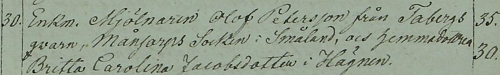 30. Enkm. Mjölnaren Olof Petersson från Tabergs 35.
qvarn, Månsarps Socken i Småland, och Hemmadottren
Britta Carolina Jacobsdotter i Hägnen. 30.